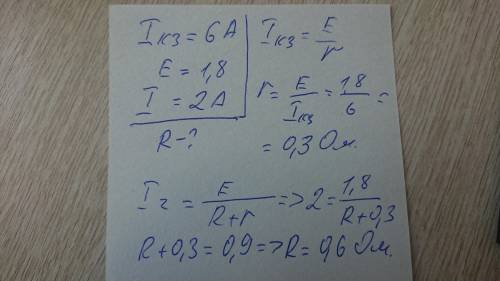 Iкз = 6 А
E = 1,8
I = 2А
R - ?
Iкз = E/r
r = E/Iкз = 18/6 =
= 0,3 Ом.
I₂ = E/(R+r) => 2 = 1,8/(R+0,3)
R+0,3 = 0,9 => R = 0,6 Ом.